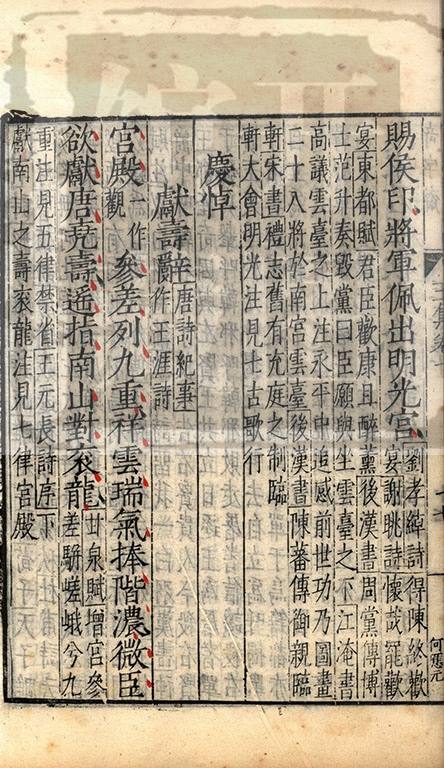 賜侯印將軍佩出明光宮
劉孝綽詩得陳終歡
宴謝眺詩懷哉罷歡
宴東都賦君臣歡康且醉薰後漢書周黨傳博
士范升奏毀黨曰臣願與坐雲臺之下江淹書
高議雲臺之上注永平中追感前世功乃圖畫
二十八將於南宮雲臺後漢書陳蕃傳銜親臨
軒宋書禮志舊有充庭之制臨
軒大會明光注見七古歌行
慶悼
獻壽辭
唐詩紀事
作王涯詩
宮殿
一作
觀
參差列九重祥雲瑞氣捧階濃微臣
欲獻唐堯壽遥指南山對衮龍
甘泉賦增宮參
差駢嵯峨兮九
重注見五律禁省王元長詩序下
獻南山之壽衮龍注見七律宮殿